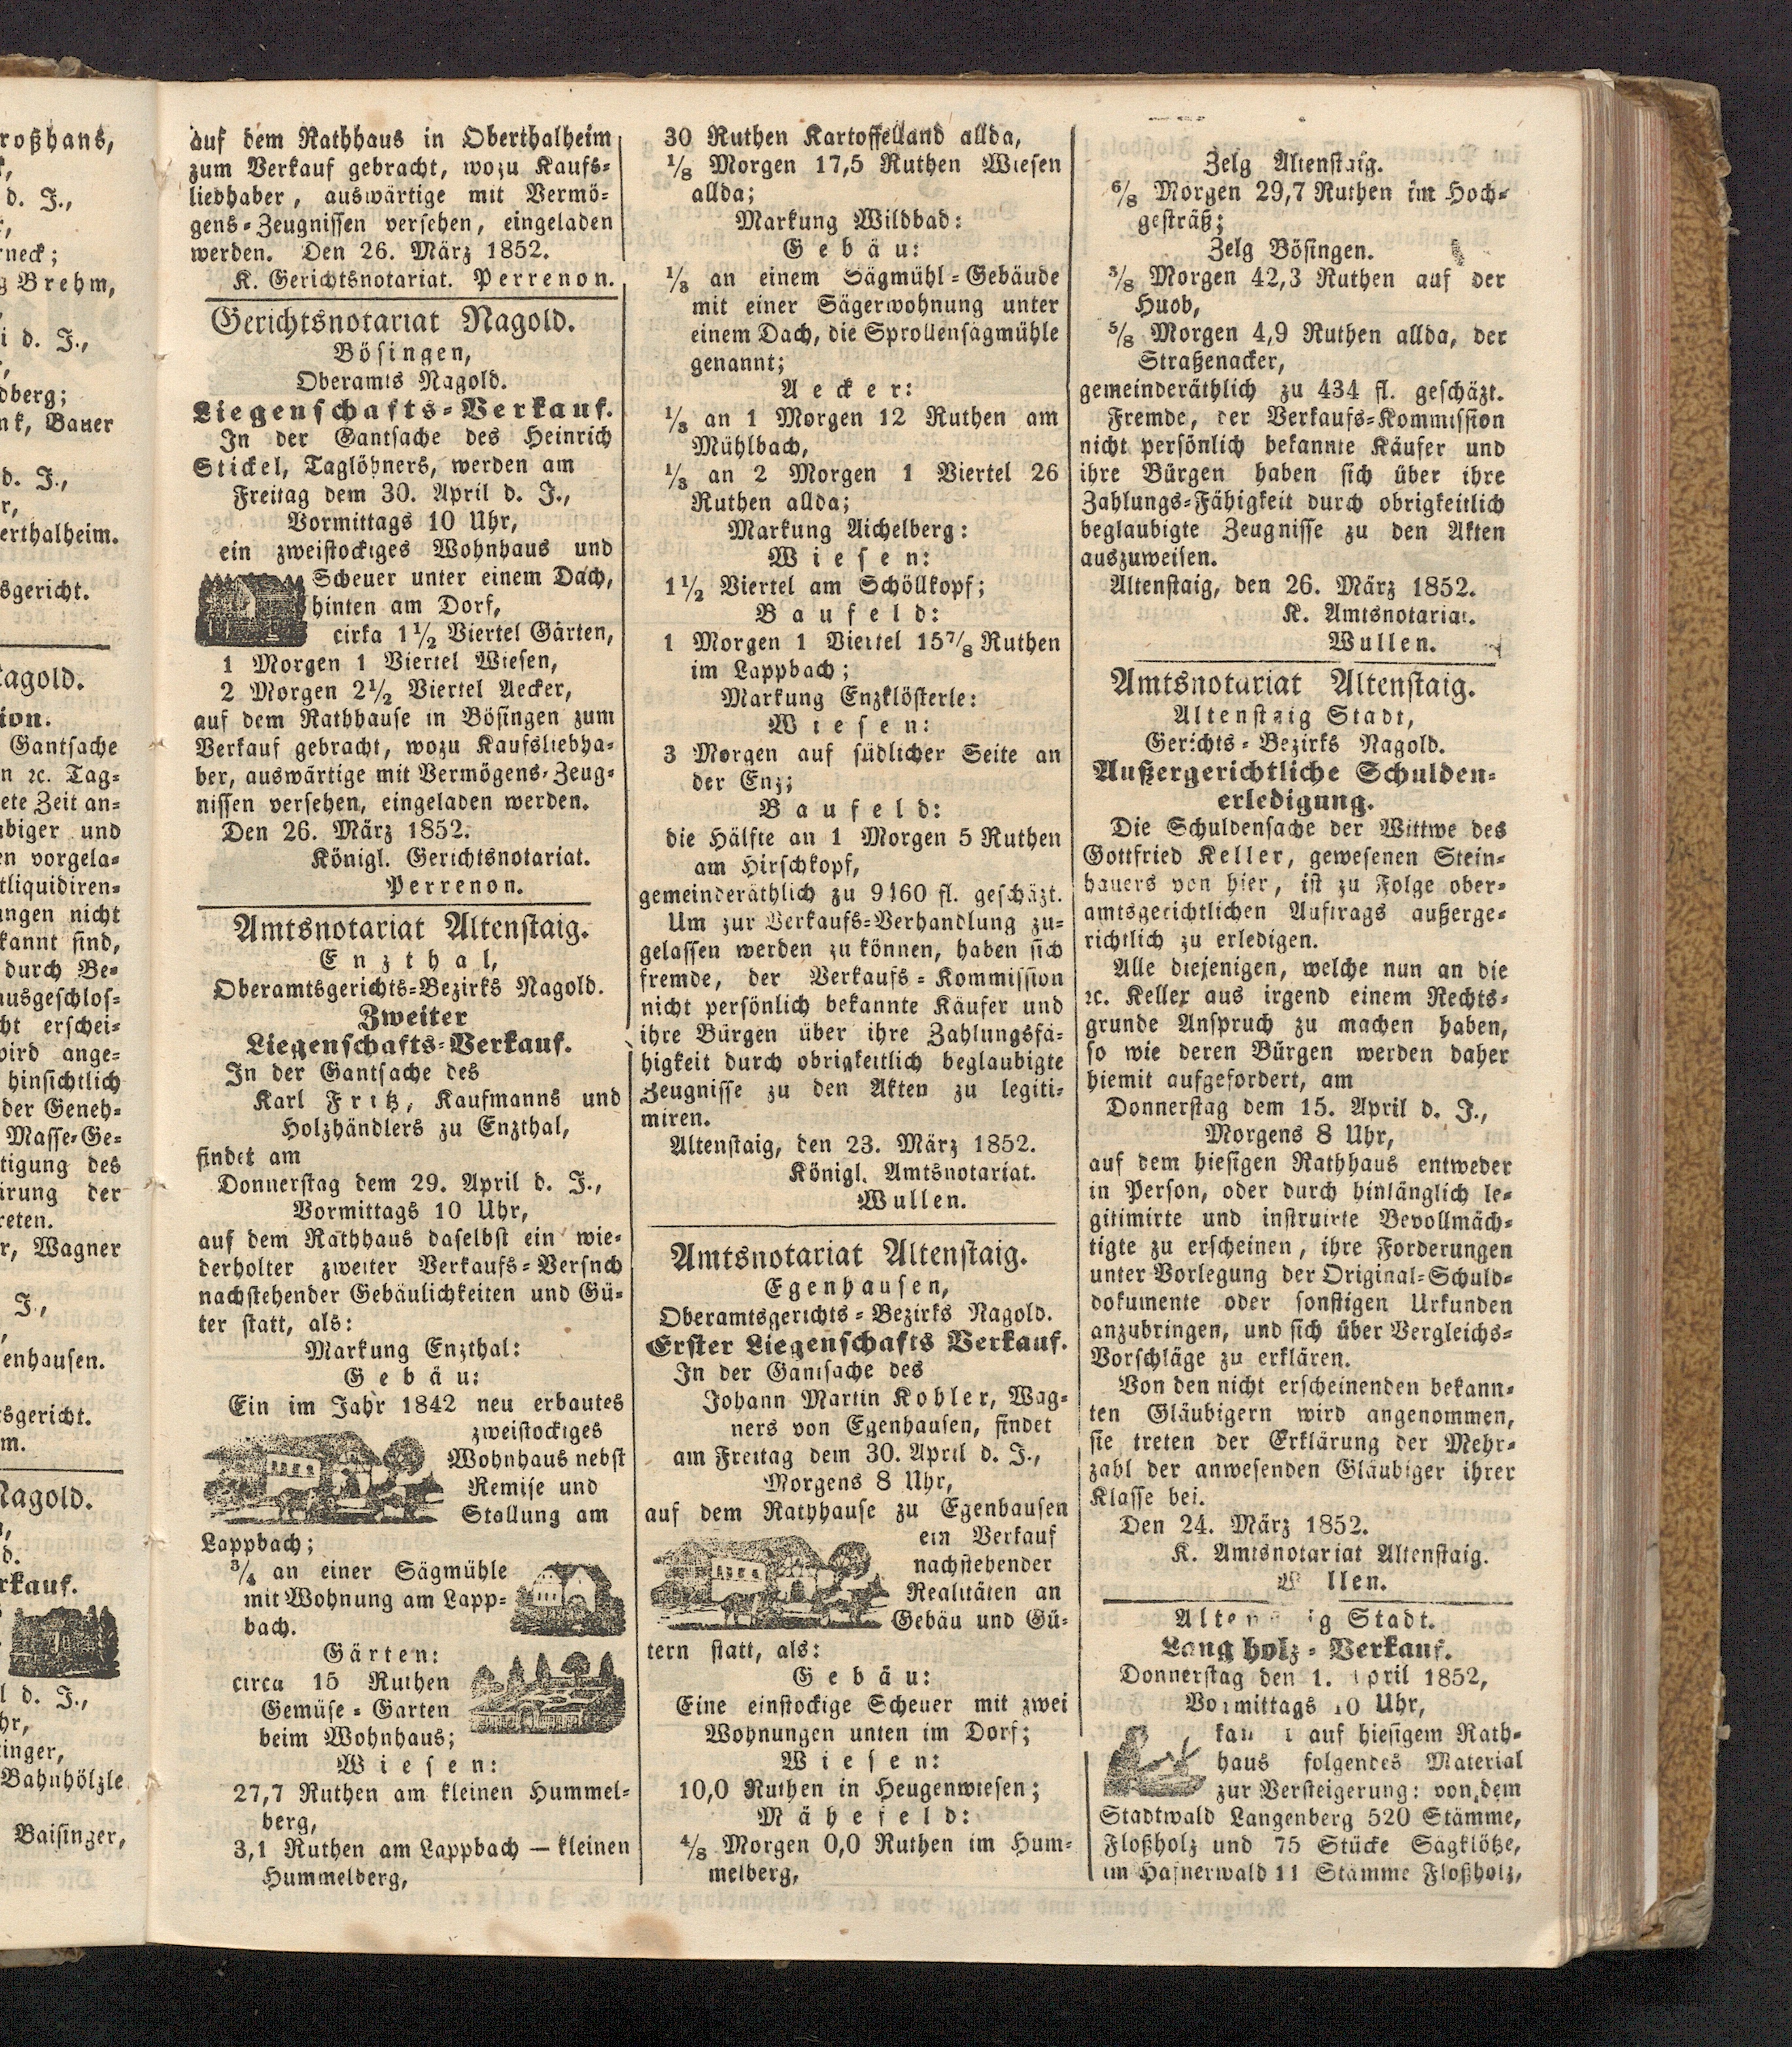 roßhans,
d. J.,
rneck;
g Brehm,
i d. J.,
dberg;
nk, Bauer
d. J.,
r,
erthalheim.
sgericht.
agold.
ion.
Gantsache
n ꝛc. Tag-
ete Zeit an-
biger und
en vorgela-
tliquidiren-
ungen nicht
kannt sind,
durch Be-
ausgeschlos-
cht erschei-
wird ange-
hinsichtlich
der Geneh-
Masse-Ge-
tigung des
ärung der
reten.
r, Wagner
J.,
enhausen.
sgericht.
m.
Nagold.
d.
rkauf.
l d. J.,
hr,
inger,
Bahnhölzle
Baisinger,
auf dem Rathhaus in Oberthalheim
zum Verkauf gebracht, wozu Kaufs-
liebhaber, auswärtige mit Vermö-
gens-Zeugnissen versehen, eingeladen
werden. Den 26. März 1852.
K. Gerichtsnotariat. Perrenon.
Gerichtsnotariat Nagold.
Bösingen,
Oberamts Nagold.
Liegenschafts-Verkauf.
In der Gantsache des Heinrich
Stickel, Taglöhners, werden am
Freitag dem 30. April d. J.,
Vormittags 10 Uhr,
ein zweistockiges Wohnhaus und
Scheuer unter einem Dach,
hinten am Dorf,
cirka 1½ Viertel Gärten,
1 Morgen 1 Viertel Wiesen,
2 Morgen 2½ Viertel Aecker,
auf dem Rathhause in Bösingen zum
Verkauf gebracht, wozu Kaufsliebha-
ber, auswärtige mit Vermögens-Zeug-
nissen versehen, eingeladen werden.
Den 26. März 1852.
Königl. Gerichtsnotariat.
Perrenon.
Amtsnotariat Altenstaig.
Enzthal,
Oberamtsgerichts-Bezirks Nagold.
Zweiter
Liegenschafts-Verkauf.
In der Gantsache des
Karl Fritz, Kaufmanns und
Holzhändlers zu Enzthal,
findet am
Donnerstag dem 29. April d. J.,
Vormittags 10 Uhr,
auf dem Rathhaus daselbst ein wie-
derholter zweiter Verkaufs-Versuch
nachstehender Gebäulichkeiten und Gü-
ter statt, als:
Markung Enzthal:
Gebäu:
Ein im Jahr 1842 neu erbautes
zweistockiges
Wohnhaus nebst
Remise und
Stallung am
Lappbach;
¾ an einer Sägmühle
mit Wohnung am Lapp-
bach.
Gärten:
circa 15 Ruthen
Gemüse-Garten
beim Wohnhaus;
Wiesen:
27,7 Ruthen am kleinen Hummel-
berg,
3,1 Ruthen am Lappbach — kleinen
Hummelberg,
30 Ruthen Kartoffelland allda,
⅛ Morgen 17,5 Ruthen Wiesen
allda;
Markung Wildbad:
Gebäu:
⅓ an einem Sägmühl-Gebäude
mit einer Sägerwohnung unter
einem Dach, die Sprollensägmühle
genannt;
Aecker:
⅓ an 1 Morgen 12 Ruthen am
Mühlbach,
⅓ an 2 Morgen 1 Viertel 26
Ruthen allda;
Markung Aichelberg:
Wiesen:
1½ Viertel am Schöllkopf;
Baufeld:
1 Morgen 1 Viertel 15⅞ Ruthen
im Lappbach;
Markung Enzklösterle:
Wiesen:
3 Morgen auf südlicher Seite an
der Enz;
Baufeld:
die Hälfte an 1 Morgen 5 Ruthen
am Hirschkopf,
gemeinderäthlich zu 9160 fl. geschäzt.
Um zur Verkaufs-Verhandlung zu-
gelassen werden zu können, haben sich
fremde, der Verkaufs-Kommission
nicht persönlich bekannte Käufer und
ihre Bürgen über ihre Zahlungsfä-
higkeit durch obrigkeitlich beglaubigte
Zeugnisse zu den Akten zu legiti-
miren.
Altenstaig, den 23. März 1852.
Königl. Amtsnotariat.
Wullen.
Amtsnotariat Altenstaig.
Egenhausen,
Oberamtsgerichts-Bezirks Nagold.
Erster Liegenschafts Verkauf.
In der Gantsache des
Johann Martin Kohler, Wag-
ners von Egenhausen, findet
am Freitag dem 30. April d. J.,
Morgens 8 Uhr,
auf dem Rathhause zu Egenhausen
ein Verkauf
nachstehender
Realitäten an
Gebäu und Gü-
tern statt, als:
Gebäu:
Eine einstockige Scheuer mit zwei
Wohnungen unten im Dorf;
Wiesen:
10,0 Ruthen in Heugenwiesen;
Mähefeld:
4/8 Morgen 0,0 Ruthen im Hum-
melberg,
Zelg Altenstaig.
6/8 Morgen 29,7 Ruthen im Hoch-
gesträß;
Zelg Bösingen.
⅜ Morgen 42,3 Ruthen auf der
Huob,
⅝ Morgen 4,9 Ruthen allda, der
Straßenacker,
gemeinderäthlich zu 434 fl. geschäzt.
Fremde, der Verkaufs-Kommission
nicht persönlich bekannte Käufer und
ihre Bürgen haben sich über ihre
Zahlungs-Fähigkeit durch obrigkeitlich
beglaubigte Zeugnisse zu den Akten
auszuweisen.
Altenstaig, den 26. März 1852.
K. Amtsnotariat.
Wullen.
Amtsnotariat Altenstaig.
Altenstaig Stadt,
Gerichts-Bezirks Nagold.
Außergerichtliche Schulden-
erledigung.
Die Schuldensache der Wittwe des
Gottfried Keller, gewesenen Stein-
hauers von hier, ist zu Folge ober-
amtsgerichtlichen Auftrags außerge-
richtlich zu erledigen.
Alle diejenigen, welche nun an die
ꝛc. Keller aus irgend einem Rechts-
grunde Anspruch zu machen haben,
so wie deren Bürgen werden daher
hiemit aufgefordert, am
Donnerstag dem 15. April d. J.,
Morgens 8 Uhr,
auf dem hiesigen Rathhaus entweder
in Person, oder durch hinlänglich le-
gitimirte und instruirte Bevollmäch-
tigte zu erscheinen, ihre Forderungen
unter Vorlegung der Original-Schuld-
dokumente oder sonstigen Urkunden
anzubringen, und sich über Vergleichs-
Vorschläge zu erklären.
Von den nicht erscheinenden bekann-
ten Gläubigern wird angenommen,
sie treten der Erklärung der Mehr-
zahl der anwesenden Gläubiger ihrer
Klasse bei.
Den 24. März 1852.
K. Amtsnotariat Altenstaig.
W llen.
Alten ig Stadt.
Langholz-Verkauf.
Donnerstag den 1. April 1852,
Vormittags 10 Uhr,
auf hiesigem Rath-
haus folgendes Material
zur Versteigerung: von dem
Stadtwald Langenberg 520 Stämme,
Floßholz und 75 Stücke Sägklötze,
im Hafnerwald 11 Stämme Floßholz,